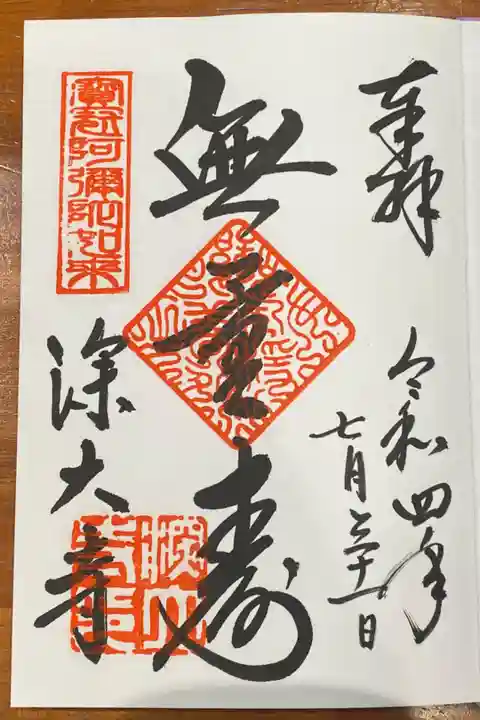 奉拝
令和四年
七月三十一日
無量寿
寳冠阿彌陀如来
深大寺